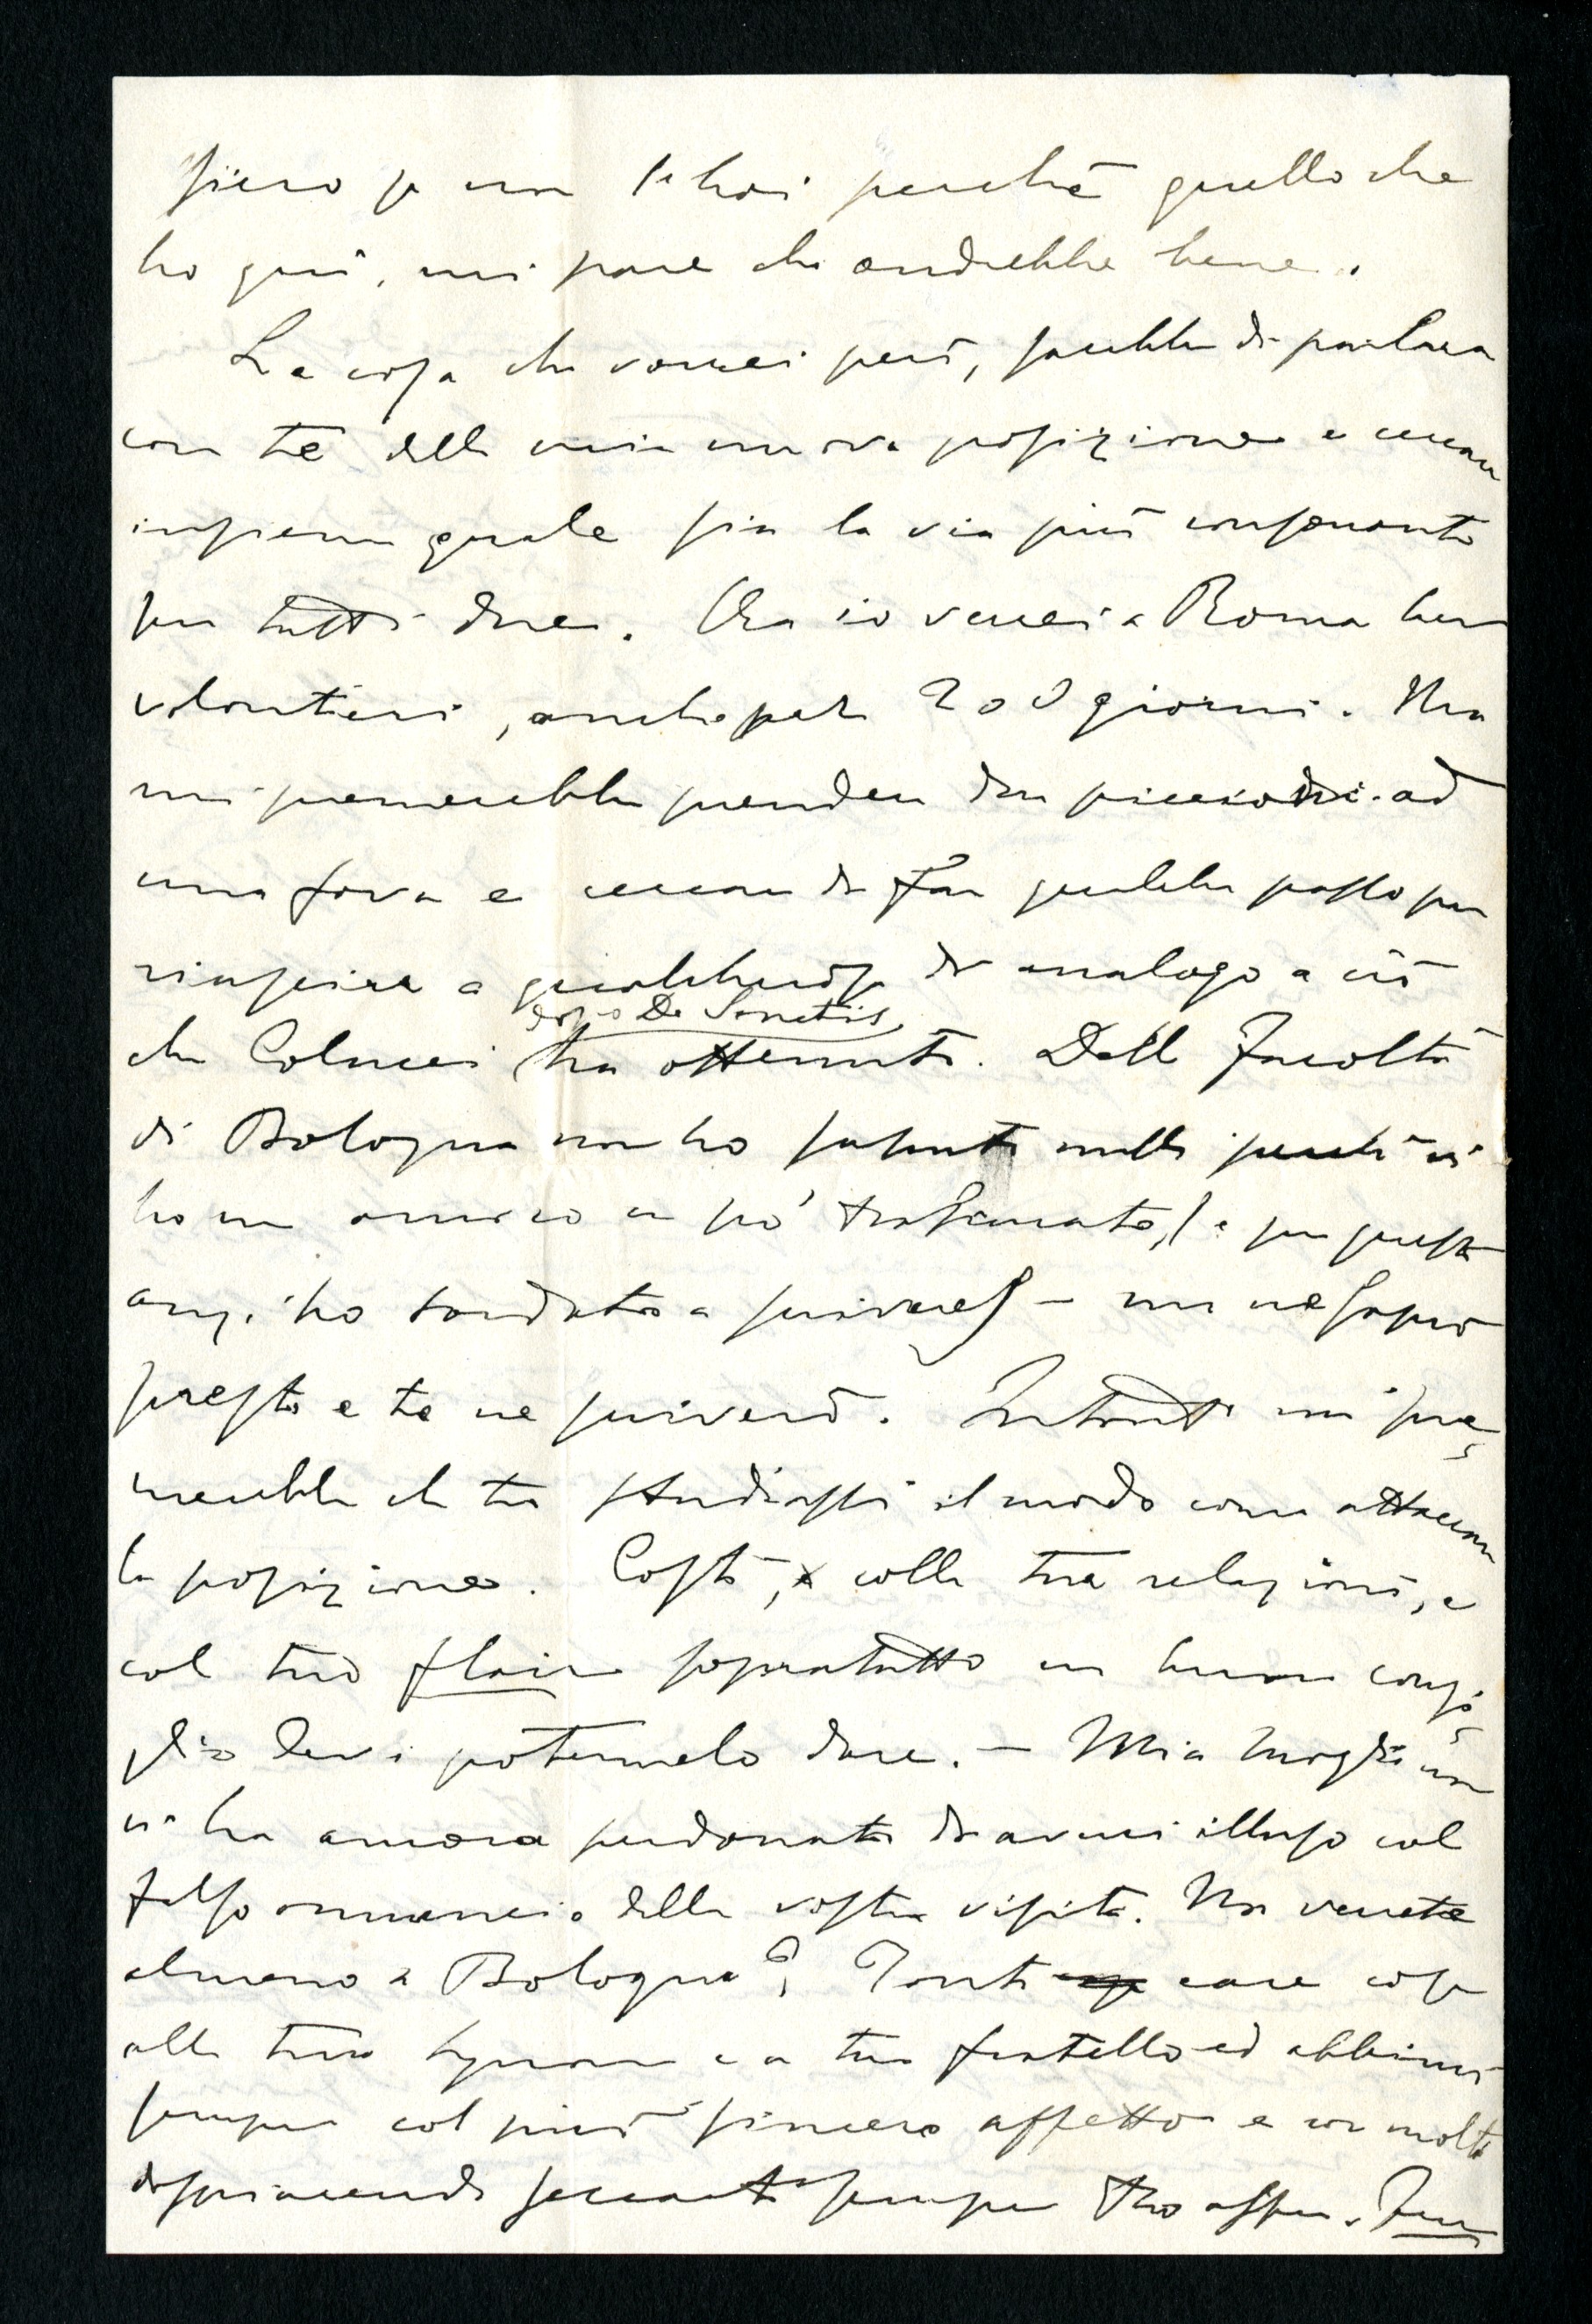 siero se non l'hai perché quello che
ho qui, mi pare che andrebbe bene.
La cosa che vorrei però, sarebbe di parlare
con te della mia nuova posizione e cercare
insieme quale sia la via più consonante
per tutti due. Ora io verrei a Roma ben
volontieri, anche per 2 o 3 giorni. Ma
mi premerebbe prendere due piccioni ad
una fava e cercare di far qualche passo per
riuscire a qualchecosa di analogo a ciò
e De Sanctis
che Colucci ha ottenuto. Dalla Facoltà
di Bologna non ho saputo nulla perché vi
ho un amico un po' trascurato, e per questo
anzi ho tardato a scrivere – ma ne saprò
presto e te ne scriverò. Intanto mi pre-
merebbe che tu studiassi il modo come attaccare
la posizione. Costà, colle tue relazioni, e
col tuo flair sopratutto un buon consi-
glio devi potermelo dare. – Mia moglie non
vi ha ancora perdonato di averci illuso col
falso annuncio della vostra visita. Non verrete
almeno a Bologna? Tante care cose
alla tua Signora e a tuo fratello ed abbimi
sempre col più sincero affetto e con molto
dispiacere di seccarti sempre tuo affmo.